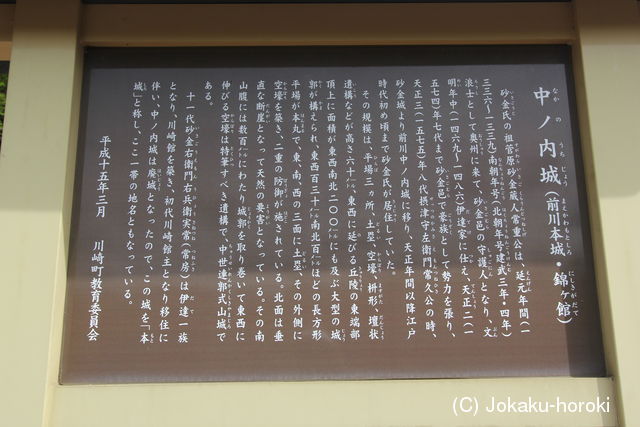 中ノ内城（前川本城・錦ヶ館）
砂金氏の祖菅原砂金蔵人常重公は、延元年間（一
三三六〜一三三九）南朝年号（北朝年号建武三年・四年）
浪士として奥州に来て、砂金邑の守護人となり、文
明年中（一四六九〜一四八六）伊達家に仕え、天正二（一
五七四）年七代まで砂金邑で豪族として勢力を張り、
天正三（一五七五）年八代摂津守左衛門常久公の時、
砂金城より前川中ノ内城に移り、天正年間以降江戸
時代初め頃まで砂金氏が居住していた。
その規模は、平場三ヶ所、土塁、空壕、枡形、壇状
遺構などが高さ六十㍍、東西に延びる丘陵の東端部
頂上に面積が東西南北二〇〇㍍にも及ぶ大型の城
郭が構えられ、東西百三十㍍南北百㍍ほどの長方形
平場が本丸で、東、南、西の三面に土塁、その外側に
空壕を築き、二重の防御が施されている。北面は垂
直な断崖となって天然の要害となっている。その南
山腹には数百㍍にわたり城郭を取り巻いて東西に
伸びる空壕は特筆すべき遺構で、中世連郭式山城で
ある。
十一代砂金右衛門右兵衛実常（常房）は伊達一族
となり、川崎館を築き、初代川崎館主となり移住に
伴い、中ノ内城は廃城となったので、この城を「本
城」と称し、ここ一帯の地名ともなっている。
平成十五年三月　川崎町教育委員会
(C) Jokaku-horoki